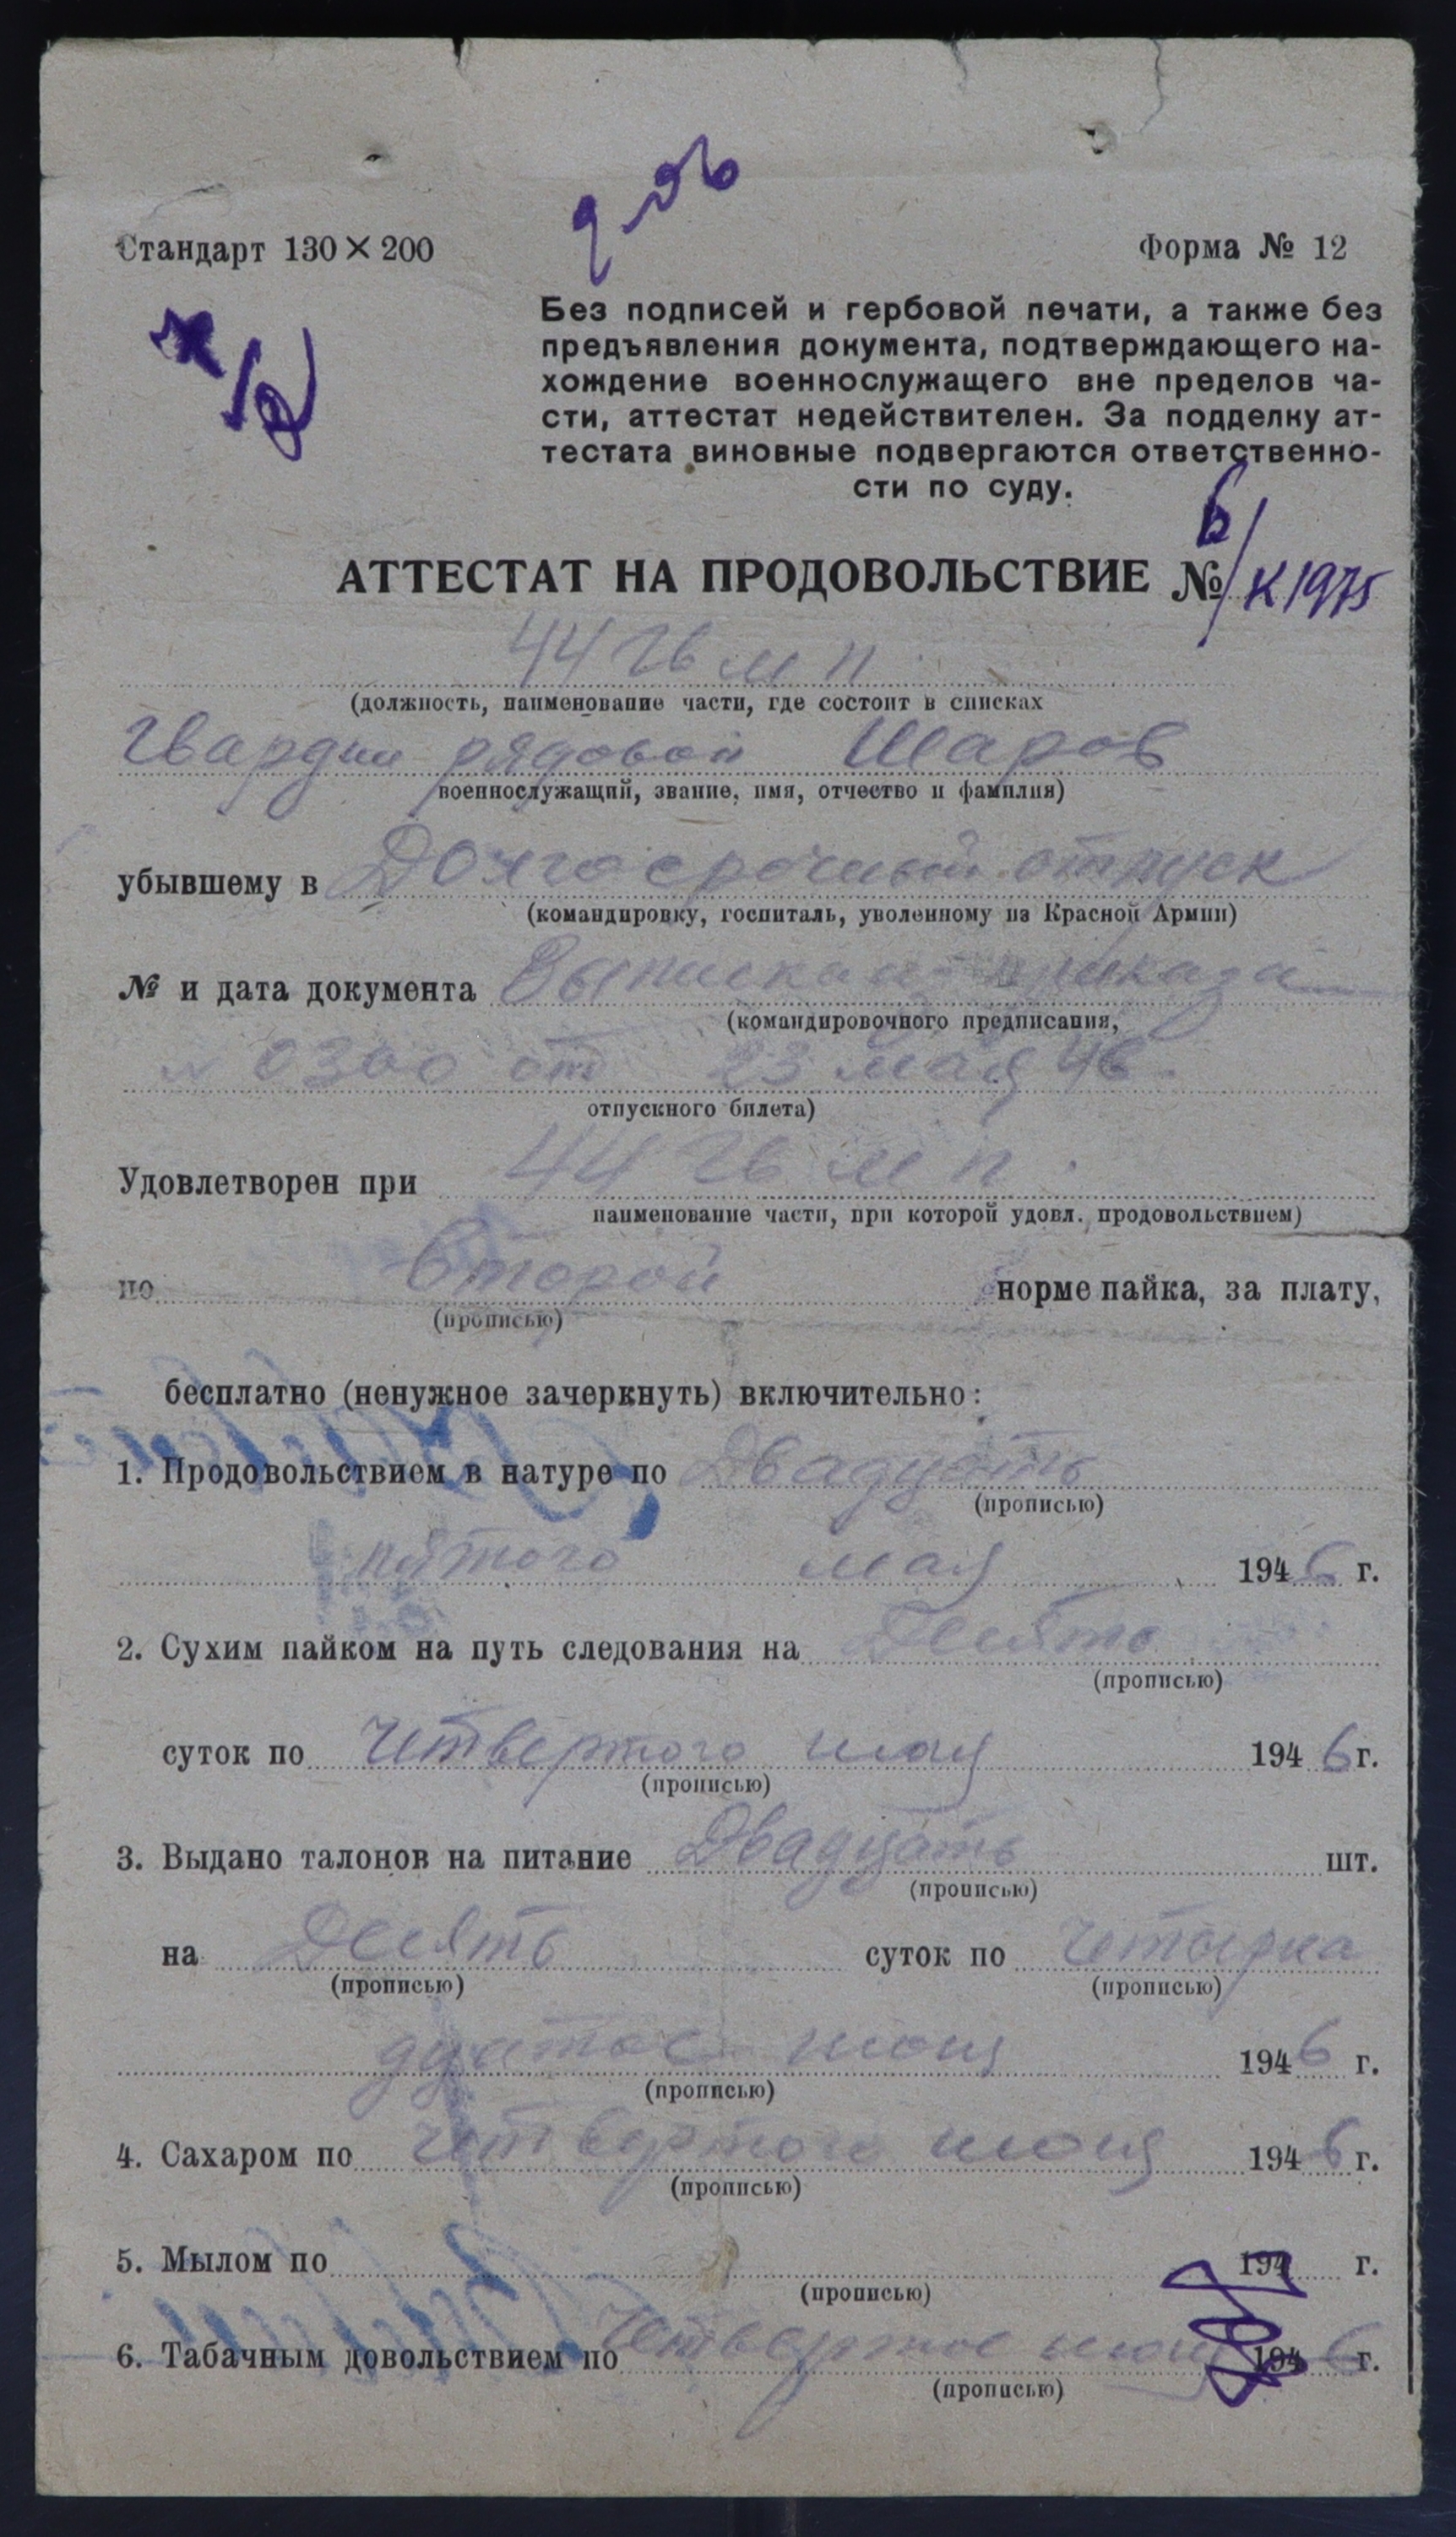 Стандарт 130 × 200
Форма № 12
Без подписей и гербовой печати, а также без
предъявления документа, подтверждающего на-
хождение военнослужащего вне пределов ча-
сти, аттестат недействителен. За подделку ат-
тестата виновные подвергаются ответственно-
сти по суду.
АТТЕСТАТ НА ПРОДОВОЛЬСТВИЕ № К 1975
44 Гв м п
(должность, наименование части, где состоит в списках
Гвардии рядовой Шаров
военнослужащий, звание, имя, отчество и фамилия)
убывшему в Долгосрочный отпуск
(командировку, госпиталь, уволенному из Красной Армии)
№ и дата документа Выписка из приказа
(командировочного предписания,
№ 0300 от 23 мая 46.
отпускного билета)
Удовлетворен при 44 Гв м п.
наименование части, при которой удовл. продовольствием)
по Второй норме пайка, за плату,
(прописью)
бесплатно (ненужное зачеркнуть) включительно:
1. Продовольствием в натуре по Двадцать
(прописью)
пятого мая 1946 г.
2. Сухим пайком на путь следования на Десять
(прописью)
суток по четвертого июня 1946 г.
(прописью)
3. Выдано талонов на питание Двадцать шт.
(прописью)
на Десять суток по четырна
(прописью)
(прописью)
дцатое июня 1946 г.
(прописью)
4. Сахаром по четвертого июня 1946 г.
(прописью)
5. Мылом по 194 г.
(прописью)
6. Табачным довольствием по четвертое июня 1946 г.
(прописью)